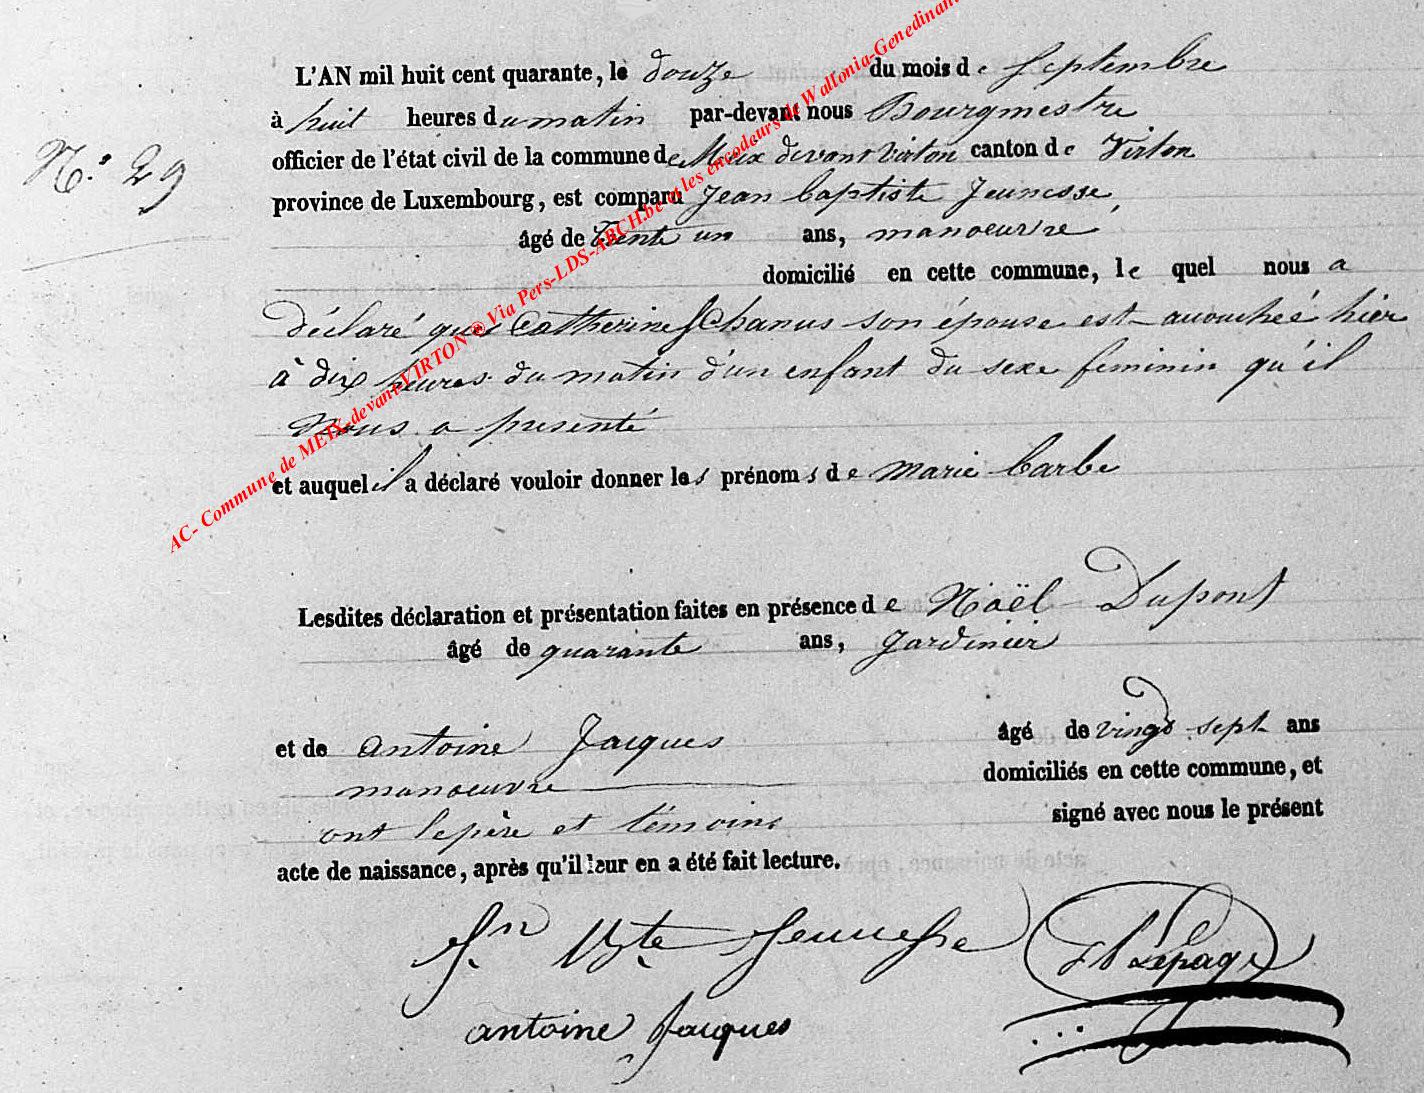 L'AN mil huit cent quarante, le douze du mois de Septembre
à huit heures du matin par-devant nous Bourgmestre
officier de l'état civil de la commune de Meix devant virton canton de Virton
N.° 29
province de Luxembourg, est comparu Jean baptiste Jeunesse,
âgé de trente un ans, manoeuvre,
domicilié en cette commune, le quel nous a
déclaré que Catherine Schanus son épouse est accouchée hier
à dix heures du matin d'un enfant du sexe feminin qu'il
nous a presenté
et auquel il a déclaré vouloir donner les prénoms de marie barbe
Lesdites déclaration et présentation faites en présence de Noël Dupont
âgé de quarante ans, jardinier
et de antoine Jacques âgé de vingt sept ans
manoeuvre domiciliés en cette commune, et
ont le père et témoins signé avec nous le présent
acte de naissance, après qu'il leur en a été fait lecture.
Jn Bte Jeunesse
Lepage
antoine Jacques
AC- Commune de MEIX-devant-VIRTON ® Via Pers-LDS-ARCH.be et les encodeurs de Wallonia-Genedinant